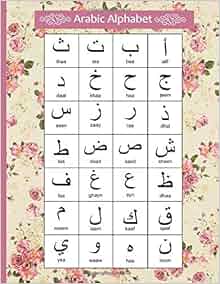 Arabic Alphabet
أ ب ت ث
thaa taa baa alif
ج ح خ د
daal khaa haa jeem
ذ ر ز س
seen zaay raa
ش ص ض ط
taa daad saad sheen
ظ ع غ ف
faa ghayn ayn
ق ك ل م
meem laam kaaf qaaf
ن ه و ي
yaa waaw haa noon